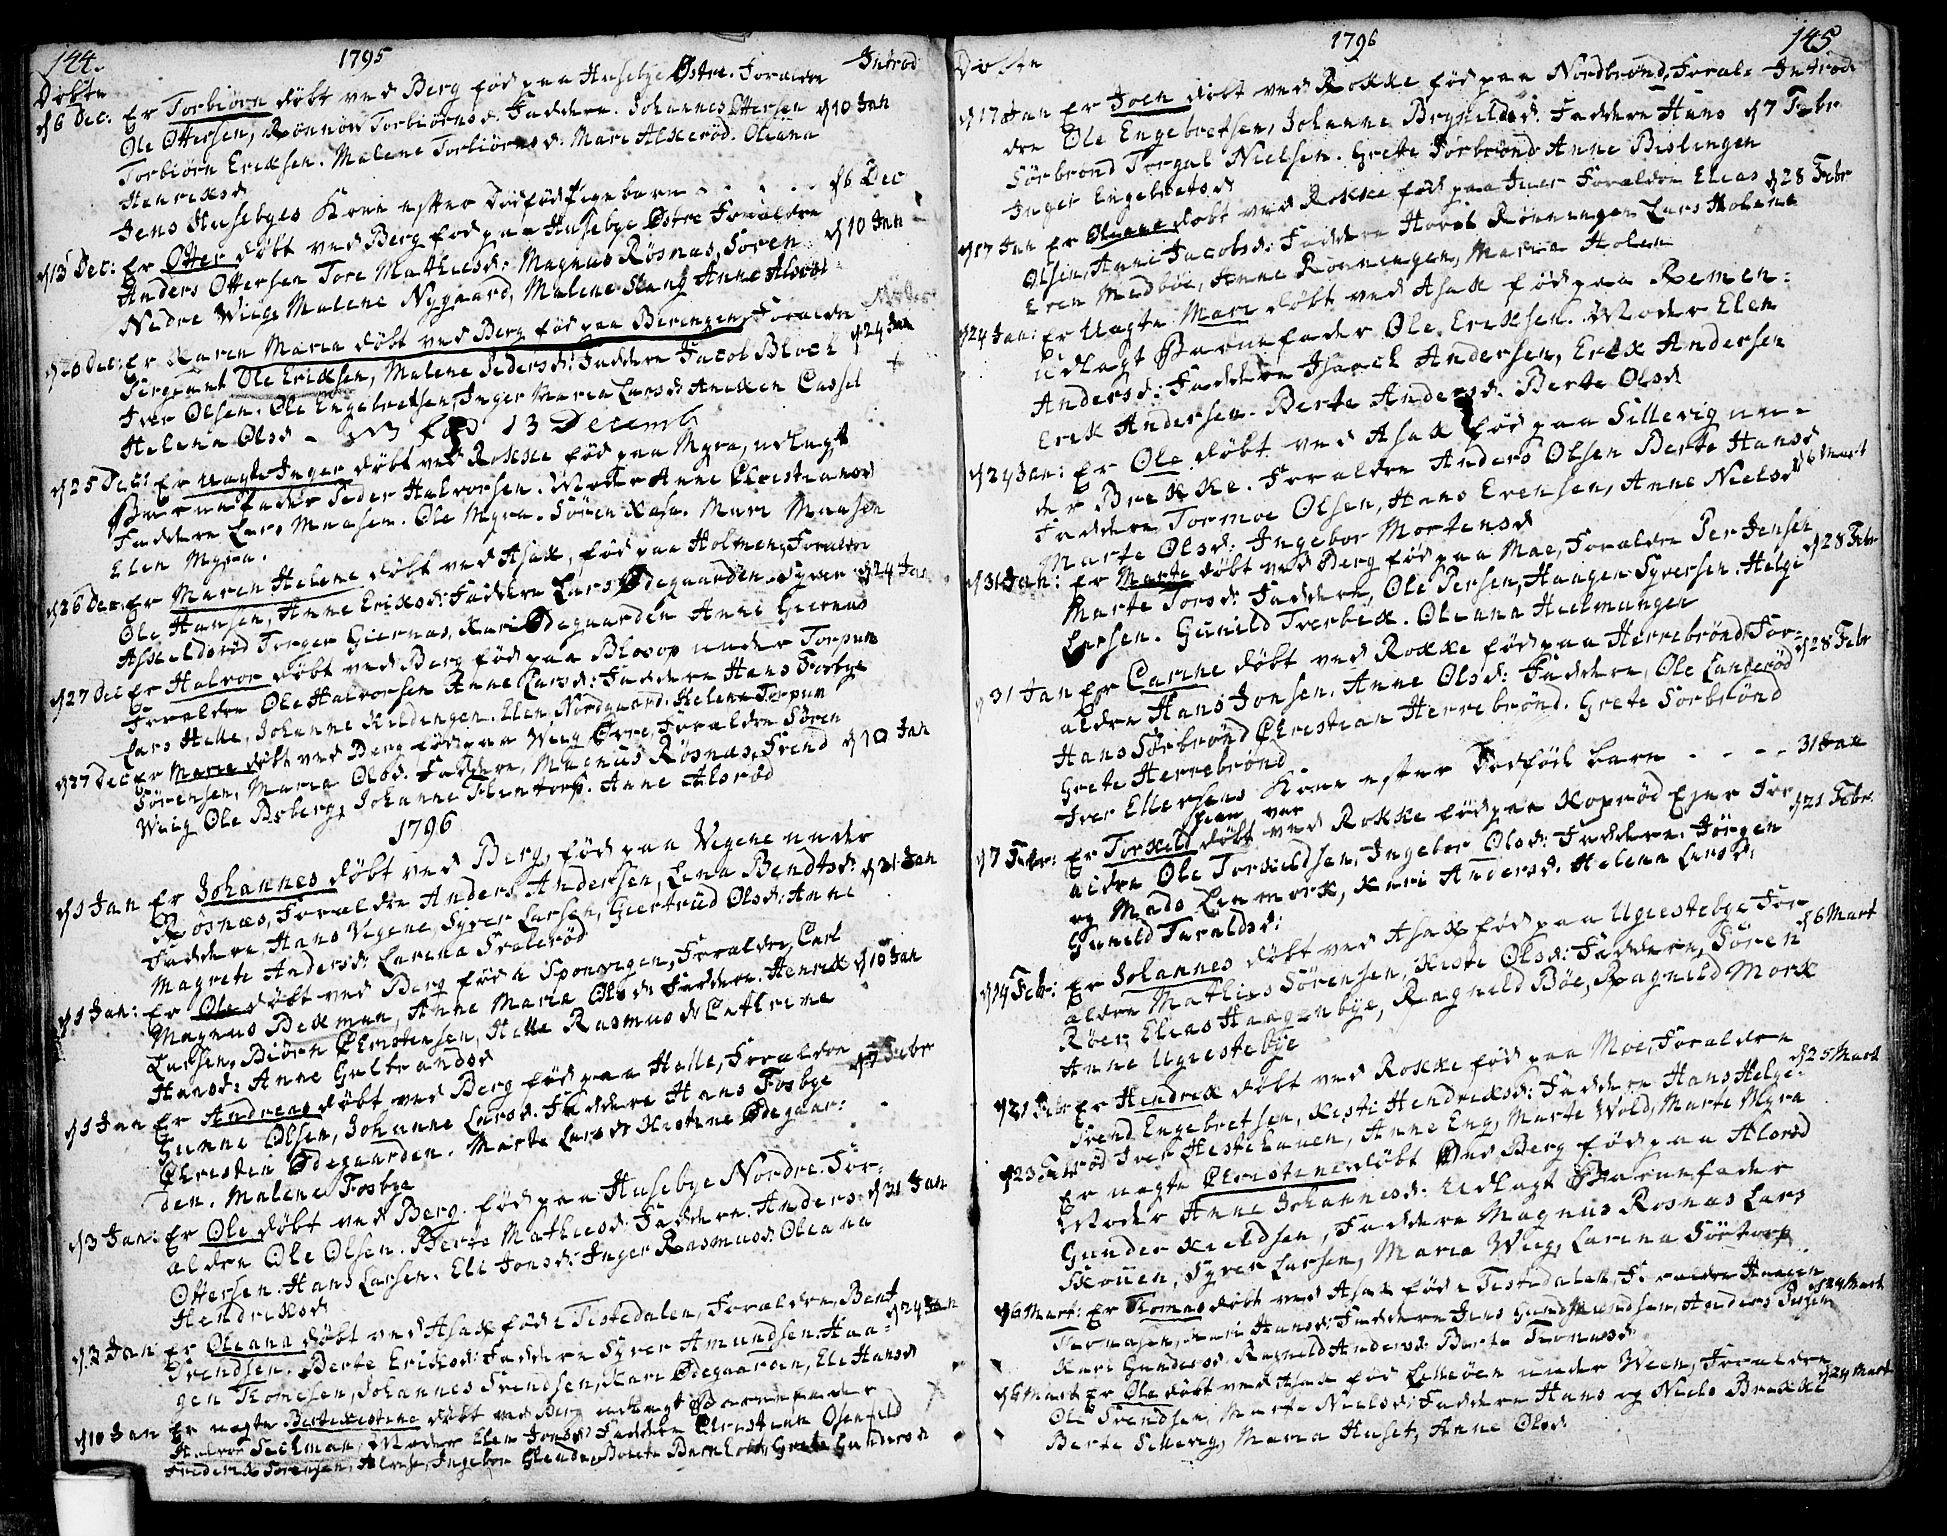 144.
1795
Introd
Döbte
d 6 Dec: Er Torbiörn döbt ved Berg fød paa Husebye Østre. Foraldre
Ole Ottersen, Rønnow Torbiørnsd: Faddere. Johannes Ottersen d 10 Jan
Torbiörn Eriksen. Malene Torbiørnsd: Mari Alkerød. Oleana
Henriksd
Jens Husebyes Kone efter Dødfød Pigebarn - - - - - d 6 Dec
d 13 Dec: Er Otter døbt ved Berg fød paa Husebye Østre Foraldre
Anders Ottersen Tore Mathiesd: Magnus Røsnæs, Søren d 10 Jan
Nedre Wiig, Malene Nygaard, Malene Stang Anne Alsrød
d 20 Dec: Er Karen Maria døbt ved Berg fød paa Berengen, Foraldre
Sergiant Ole Eriksen, Malene Pedersd: Faddere Jacob Block d 24 Jan
Iver Olsen. Ole Engebretsen, Inger Maria Larsd: Aneken Cassel
Helena Olsd - NB fød 13 Decemb
d 25 Dec: Er uagte Inger døbt ved Rokke fød paa Myra, udlagt
Barnefader Peder Halvorsen. Moder Anne Christiansd
Faddere Lars Maasen. Ole Myra. Sören Kasa. Mari Maasen
Elen Myra.
d 26 Dec: Er Maren Helene døbt ved Asak, fød paa Holmen, Foraldre
Ole Hansen, Anne Eriksd: Faddere Lars Ødegaarden. Syver d 24 Jan
Askeldsrød Torger Giernæs, Kari Ødegaarden Anne Giernæs
d 27 Dec Er Halvor døbt ved Berg fød paa Blosop under Torpum
Foraldre Ole Halvorsen Anne Larsd: Faddere Hans Fosbye
Lars Helle, Johanne Kildengen. Elen Nordgaard. Helena Torpum
d 27 Dec Er Maria døbt ved Berg fød paa Wiig Øvre, Foraldre Sören
Sörensen, Maria Olsd. Faddere, Magnus Røsnæs, Svend d 10 Jan
Wiig Ole Isberg, Johanne Flentorp. Anne Alsrød
1796
d 1 Jan Er Johannes døbt ved Berg, fød paa Vegene under
Røsnæs, Foraldre Anders Andersen, Lena Bendtsd: d 31 Jan
Faddere Hans Vegene, Syver Larsen, Giertrud Olsd: Anne
Magrete Andersd: Larena Svalerød
d 1 Jan: Er Ole døbt ved Berg fød i Sponvigen, Foraldre, Carl
Magnus Bekman, Anne Maria Olsd: Faddere. Henrik d 10 Jan
Larsen, Biørn Christensen, Helle Rasmusd: Cathrine
Hansd: Anne Gulbrandsd
d 1 Jan Er Andreas døbt ved Berg fød paa Halle, Foraldre d 7 Febr
Gunne Olsen, Johanne Larsd: Faddere Hans Fosbye
Christen Ødegaarden. Marte Larsd: Kestine Ødegaar:
den. Malene Fosbye
d 3 Jan: Er Ole døbt ved Berg fød paa Husebye Nordre. For:
aldre Ole Olsen. Berte Mathiesd: Faddere. Anders d 31 Jan
Ottersen. Hans Larsen. Eli Jonsd: Inger Rasmusd: Oleana
Hendriksd
d 3 Jan Er Oleana døbt ved Asak fød i Tistedalen, Foraldre, Bent
Svendsen. Berte Eriksd: Faddere Syver Amundsen. Haa- d 24 Jan
gen Thomesen, Johannes Svendsen, Kari Ødegaarden, Eli Hansd
d 10 Jan Er uagte Berte Kestine døbt ved Berg udlagt Barnefader
Halvor Seelman, Moder Elen Jonsd: Faddere Christian Osenfeld
Frederik Sørensen, Alvse, Ingebor Glende, Grete Gundersd
1796
145
Døbte
Introd:
d 17 Jan Er Joen døbt ved Rokke fød paa Nordbrønd, Foral-
dre Ole Engebretsen, Johanne Brynildsd: Faddere Hans d 7 Febr
Sörbrønd Torgal Nielsen. Grete Sørbrønd Anne Bislingen
Inger Engebretsd
d 17 Jan Er Oleane døbt ved Rokke fød paa Iver Foraldre Elias d 28 Febr
Olsen, Anne Jacobsd: Faddere Hovel Rønningen Lars Holene
Even Medbøe, Anne Rønningen, Maria Holen
d 24 Jan: Er Uagte Mari døbt ved Asak fød paa Remen:
Udlagt Barnefader Ole Eriksen. Moder Elen
Andersd: Faddere Isaack Andersen, Erik Andersen
Erik Andersen. Berte Andersd. Berte Olsd
d 24 Jan: Er Ole døbt ved Asak fød paa Sillevig un-
der Brekke. Foraldre Anders Olsen Berte Hansd
Faddere Tormoe Olsen, Hans Evensen, Anne Nielsd d 6 Mart
Marte Olsd: Ingebor Mortensd
d 31 Jan: Er Marte døbt ved Berg fød paa Moe, Foraldre Per Jensen
Marte Torsd: Faddere, Ole Persen, Haagen Syversen. Helge d 28 Febr
Larsen. Gunild Tverbek. Oleana Hielmungen
d 31 Jan Er Carine døbt ved Rokke fød paa Herrebrønd, For-
aldre Hans Jonsen. Anne Olsd: Faddere, Ole Langerød d 28 Febr
Hans Sørbrønd Christian Herrebrønd. Grete Sørbrønd
Grete Herrebrønd
Iver Ellersens Kone efter Dødfød barn - - - - 31 Jan
d 7 Febr: Er Torkild døbt ved Rokke fød paa Koprød Ejer For
aldre Ole Torkildsen, Ingebor Olsd: Faddere. Jørgen d 21 Febr:
og Mads Lenmork, Kari Andersd. Helena Larsd:
Gunild Taraldsd:
d 14 Febr: Er Johannes døbt ved Asak fød paa Ugiestebye For
aldre Mathies Sörensen, Kiste Olsd: Faddere, Sören d 6 Mart
Røer, Elias Haagenbye, Ragnild Bøe, Ragnild Mork
Anne Ugiestebye
d 21 Febr Er Hendrik døbt ved Rokke fød paa Moe, Foraldre
Svend Engebretsen, Kesti Hendriksd: Faddere Hans Helge- d 25 Mart
rød Iver Hestehauen, Anne Eng, Marte Wold, Marte Myra
d 23 Febr Er uagte Christine døbt ved Berg fød paa Alsrød
Moder Anne Johannesd: Udlagt Barnefader
Gunder Kieldsen, Faddere Magnus Rosnæs Lars
Skouen, Syver Larsen, Maria Wiig, Larena Sörtorp
d 6 Mart: Er Thomas døbt ved Asak fød i Tistedalen, Foraldre Haagen
Thomasen, Kari Hansd: Faddere Jens Gudmundsen, Anders Persen d 24 Mart
Kari Gundersd. Ragnild Andersd: Berte Thomasd
d 6 Mart Er Ole døbt ved Asak fød Lilleøen under Ween, Foraldre
Ole Svendsen, Marte Nielsd: Faddere Hans og Niels Brekke d 24 Mart
Berte Sillevig, Maria Huset, Anne Olsd